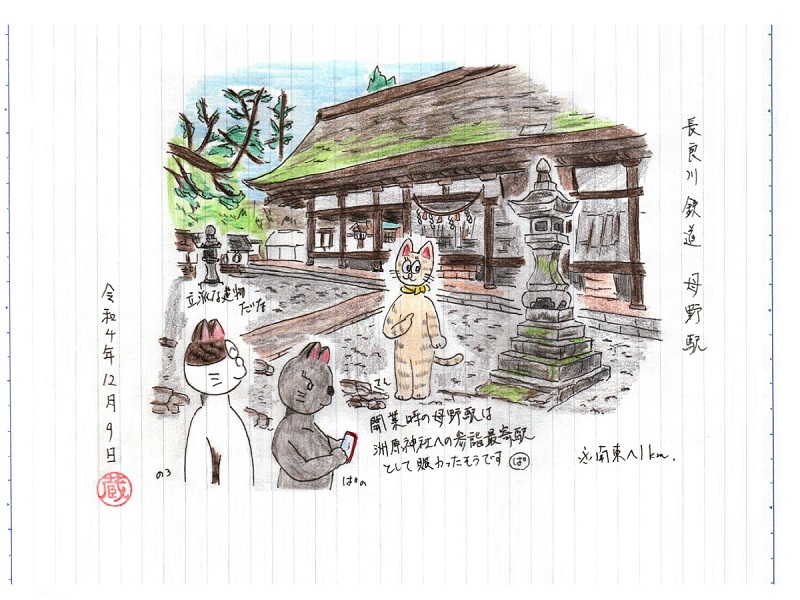 長良川鉄道 母野駅
立派な建物
だな
さん
開業時の母野駅は
洲原神社への参詣最寄駅
として賑わったそうです ぱ
南東へ1km.
のろ
ぱの
令和4年12月9日
蔵